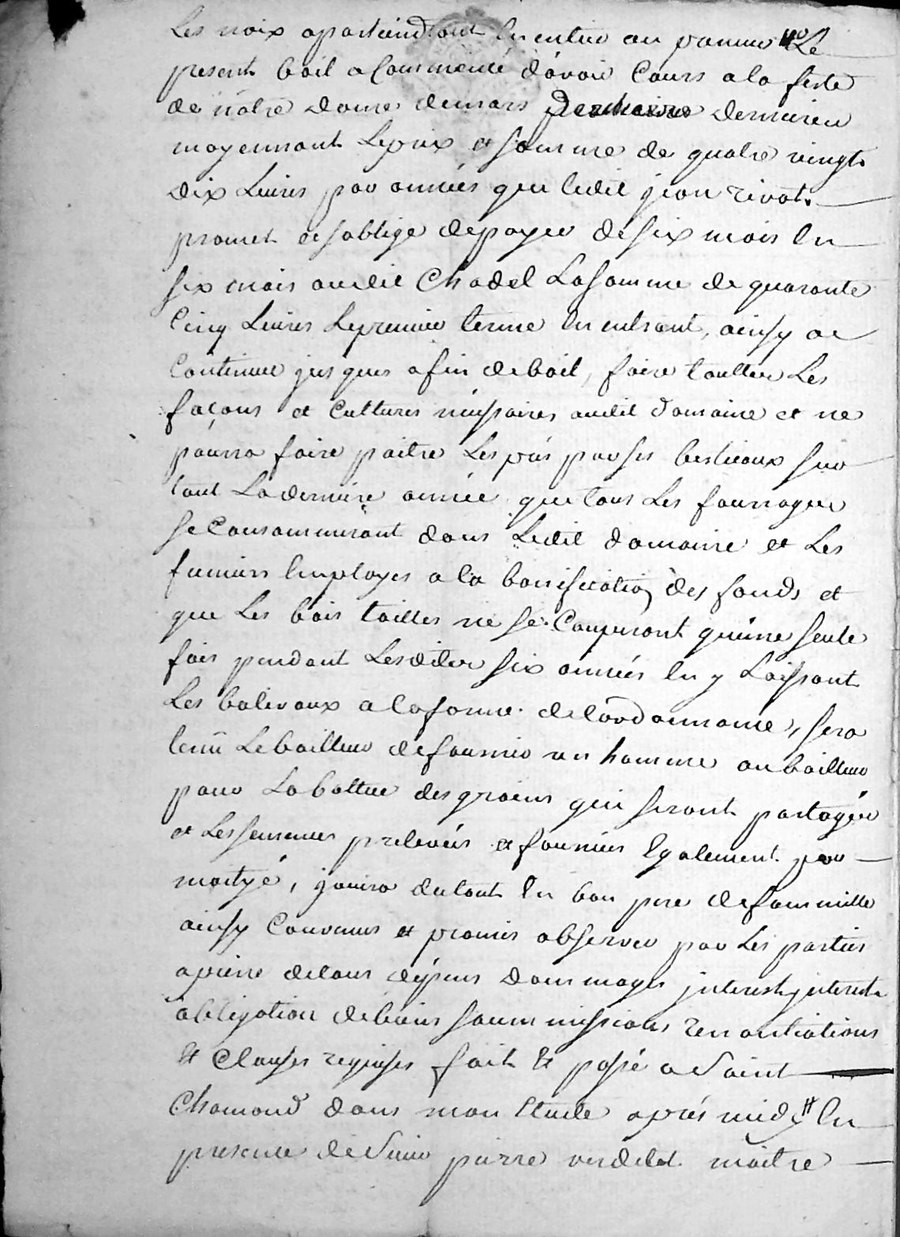 Les noix apartiendront en entier au preneur Le
present bail a Commencé davoir Cours a la feste
de nôtre dame de mars derniere
moyennant Leprix et somme de quatre vingt
dix Livres par années que ledit jean rivat
promet et soblige depayer de six mois en
six mois audit Chadel Lasomme de quarante
Cinq Livres Lepremier terme en entrant, ainsy a
Continuer jusques afin debail, faire toutes Les
façons et Cultures nécessaires audit domaine et ne
pourra faire paitre Les prés par ses bestieaux sur
tout Laderniere année que tous Les fourrages
se Consommeront dans Ledit domaine et Les
fumiers Employes a la bonification des fonds et
que Les bois taillés ne se Couperont qu'une seule
fois pendant Lesdites six années en y Laissant
Les balivaux a laforme de lordonnance, sera
tenu Lebailleur defournir un homme au bailleur
pour La battue des grains qui seront partagés
et Lessemences prelevées et fournies Egalement par
moityé, jouira du tout En bon pere defammille
ainsy Convenus et promis observer par Les parties
apeine detous dépens dommages interest
obligation debiens soummissions renontiations
Et Clauses requises fait Et passé a Saint
Chamond dans mon Etude aprés midy En
presence de Sieur pierre verdelet maitre